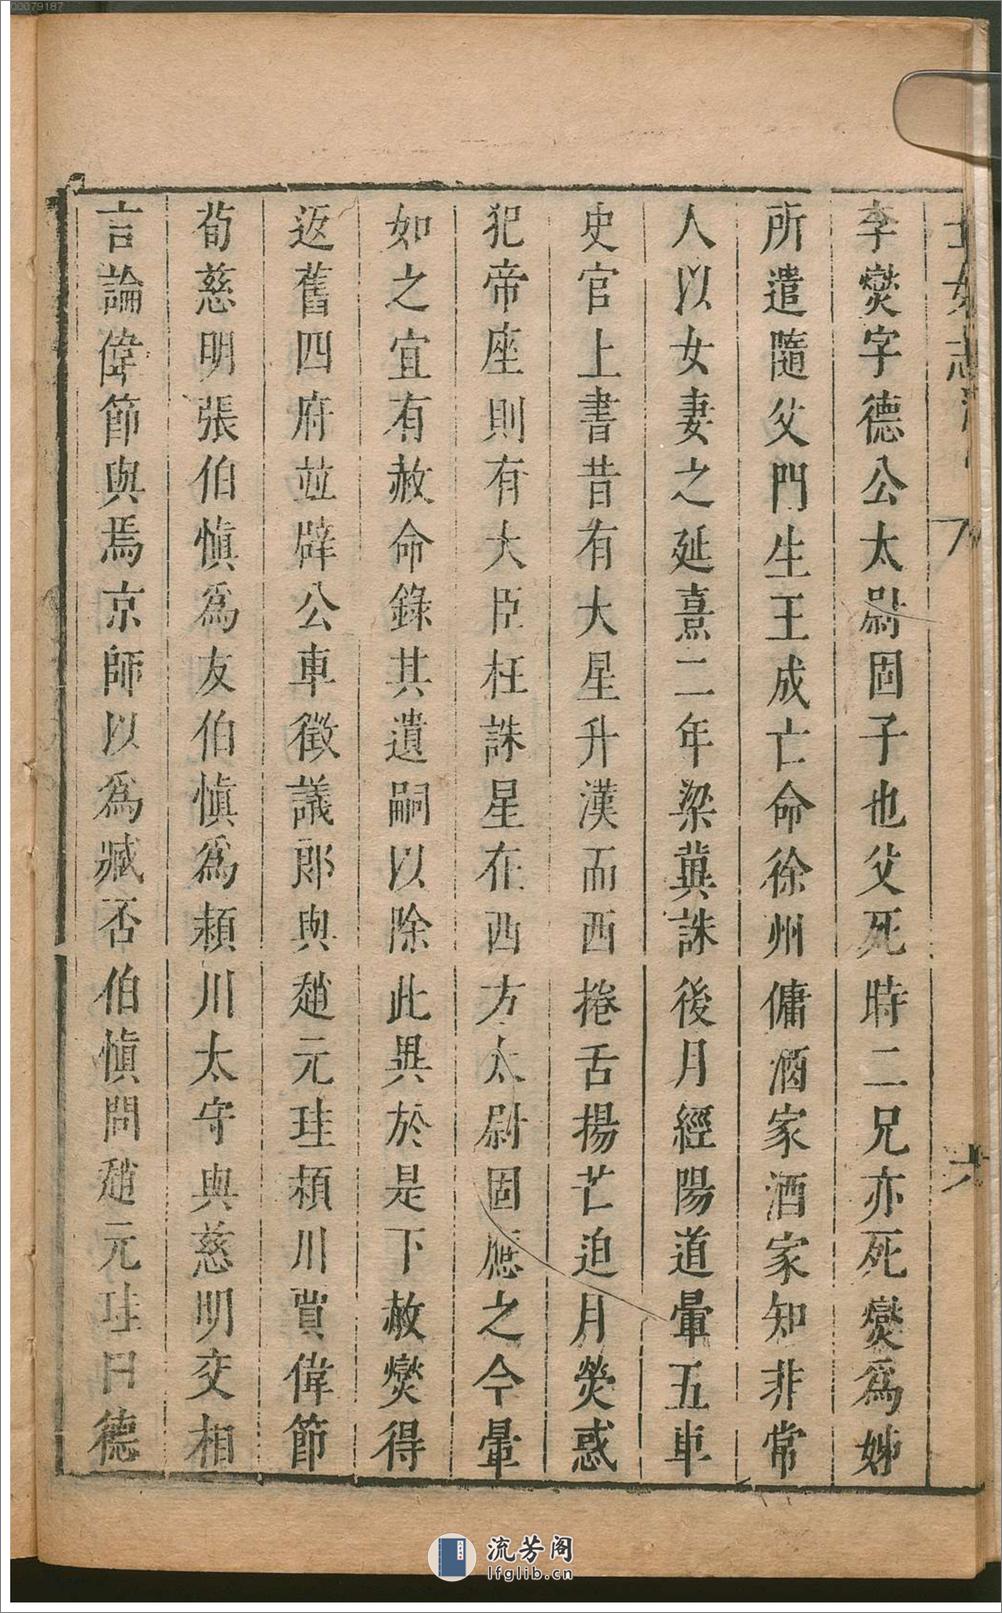 李爕字德公太尉固子也父死時二兄亦死爕爲姊
所遣隨父門生王成亡命徐州傭酒家酒家知非常
人以女妻之延熹二年梁冀誅後月經陽道暈五車
史官上書昔有大星升漢而西捲舌揚芒迫月熒惑
犯帝座則有大臣枉誅星在西方太尉固應之今暈
如之宜有赦命錄其遺嗣以除此異於是下赦爕得
返舊四府並辟公車徵議郎與趙元珪潁川賈偉節
荀慈明張伯愼爲友伯愼爲潁川太守與慈明交相
言論偉節與焉京師以爲臧否伯愼問趙元珪曰德
00079187
流芳阁
lfglib.cn